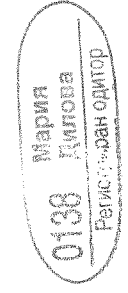 0138
Мария
Дилова
Регистриран одитор